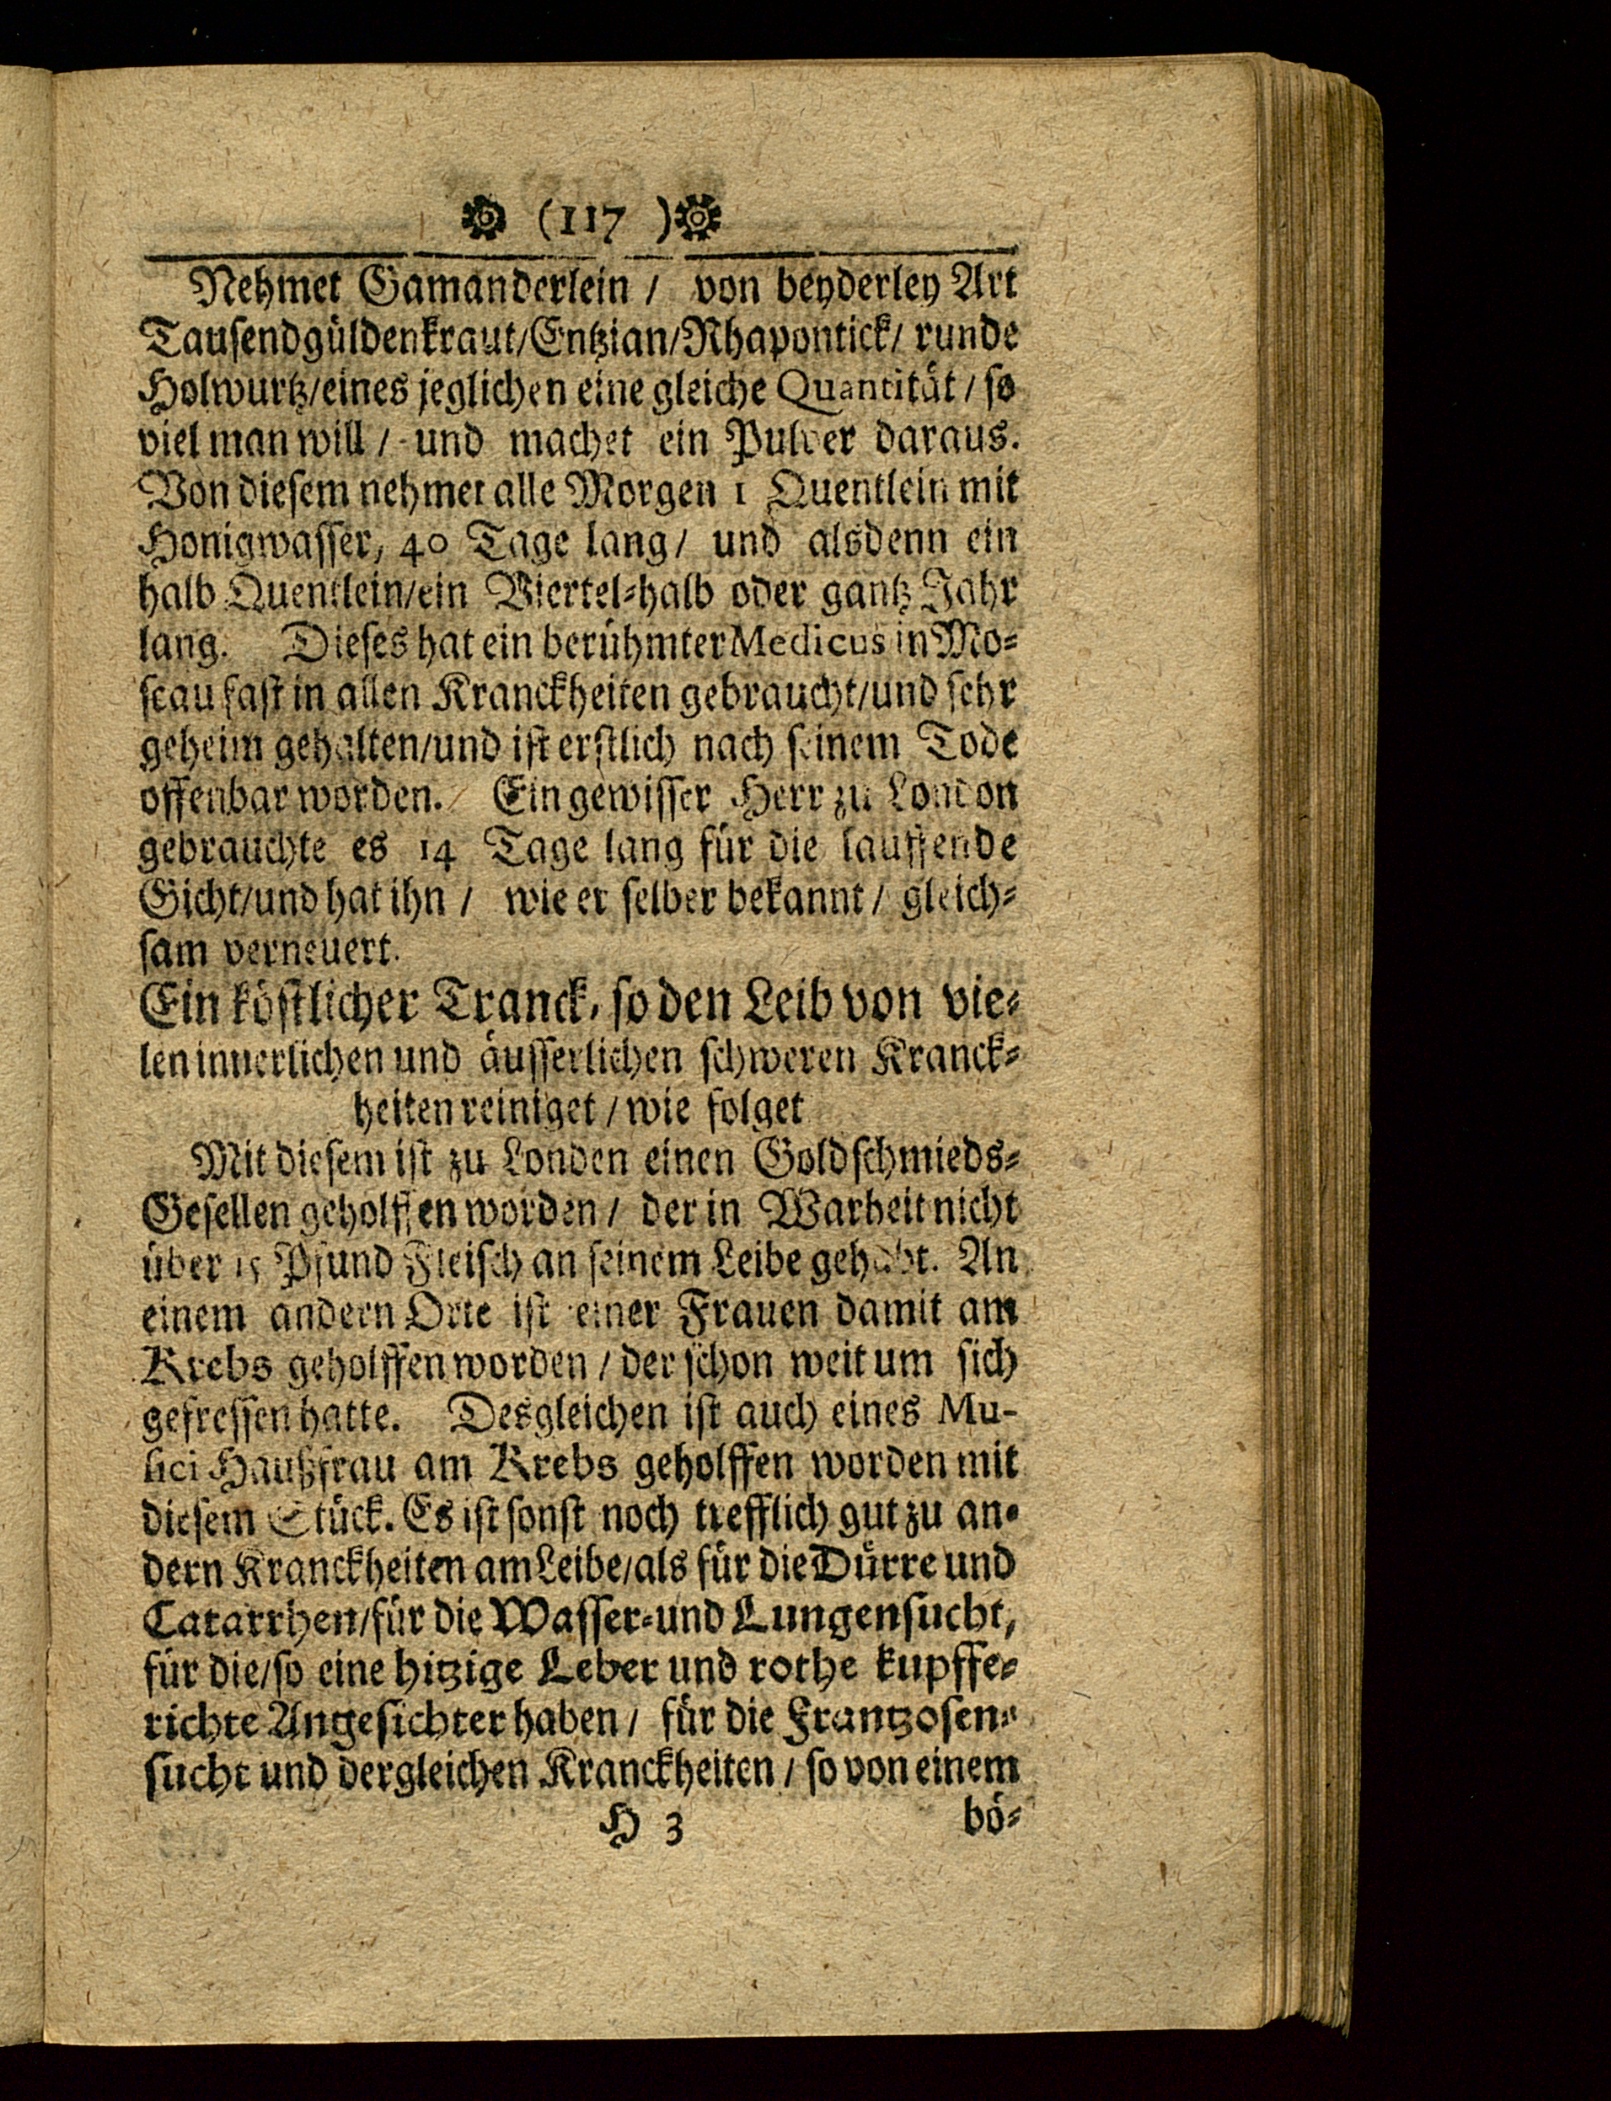 (117)
Nehmet Gamanderlein / von beyderley Art
Tausendgüldenkraut/Entzian/Rhapontick/ runde
Holwurtz/eines jeglichen eine gleiche Quantität / so
viel man will / und machet ein Pulver daraus.
Von diesem nehmet alle Morgen 1 Quentlein mit
Honigwasser, 40 Tage lang/ und alsdenn ein
halb Quentlein/ein Viertel-halb oder gantz Jahr
lang. Dieses hat ein berühmter Medicus in Mo-
scau fast in allen Kranckheiten gebraucht/und sehr
geheim gehalten/und ist erstlich nach seinem Tode
offenbar worden. Ein gewisser Herr zu London
gebrauchte es 14 Tage lang für die lauffende
Gicht/und hat ihn / wie er selber bekannt / gleich-
sam verneuert.
Ein köstlicher Tranck, so den Leib von vie-
len innerlichen und äusserlichen schweren Kranck-
heiten reiniget / wie folget
Mit diesem ist zu Londen einen Goldschmieds-
Gesellen geholffen worden / der in Warheit nicht
über 15 Pfund Fleisch an seinem Leibe gehabt. An
einem andern Orte ist einer Frauen damit am
Krebs geholffen worden / der schon weit um sich
gefressen hatte. Desgleichen ist auch eines Mu-
sici Haußfrau am Krebs geholffen worden mit
diesem Stück. Es ist sonst noch trefflich gut zu an-
dern Kranckheiten am Leibe/als für die Dürre und
Catarrhen/für die Wasser-und Lungensucht,
für die/so eine hitzige Leber und rothe kupffe-
richte Angesichter haben / für die Frantzosen-
sucht und dergleichen Kranckheiten / so von einem
H 3 bö-